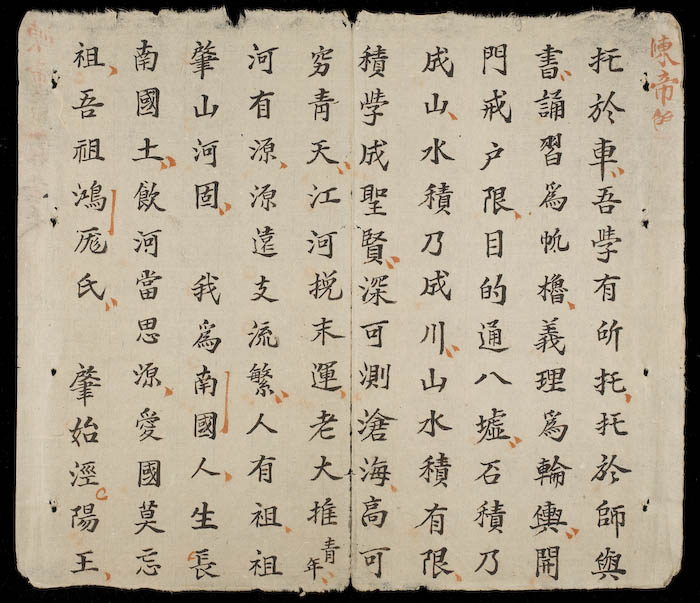 陳帝
托於車吾學有所托托於師與
書誦習爲帆櫓義理爲輪輿開
門戒户限目的通八墟石積乃
成山水積乃成川山水積有限
積學成聖賢深可測滄海高可
穷青天江河挽末運老大推青年
河有源源遠支流繁人有祖祖
肇山河固 我爲南國人生長
南國土飲河當思源愛國莫忘
祖吾祖鴻厖氏 肇始涇陽王